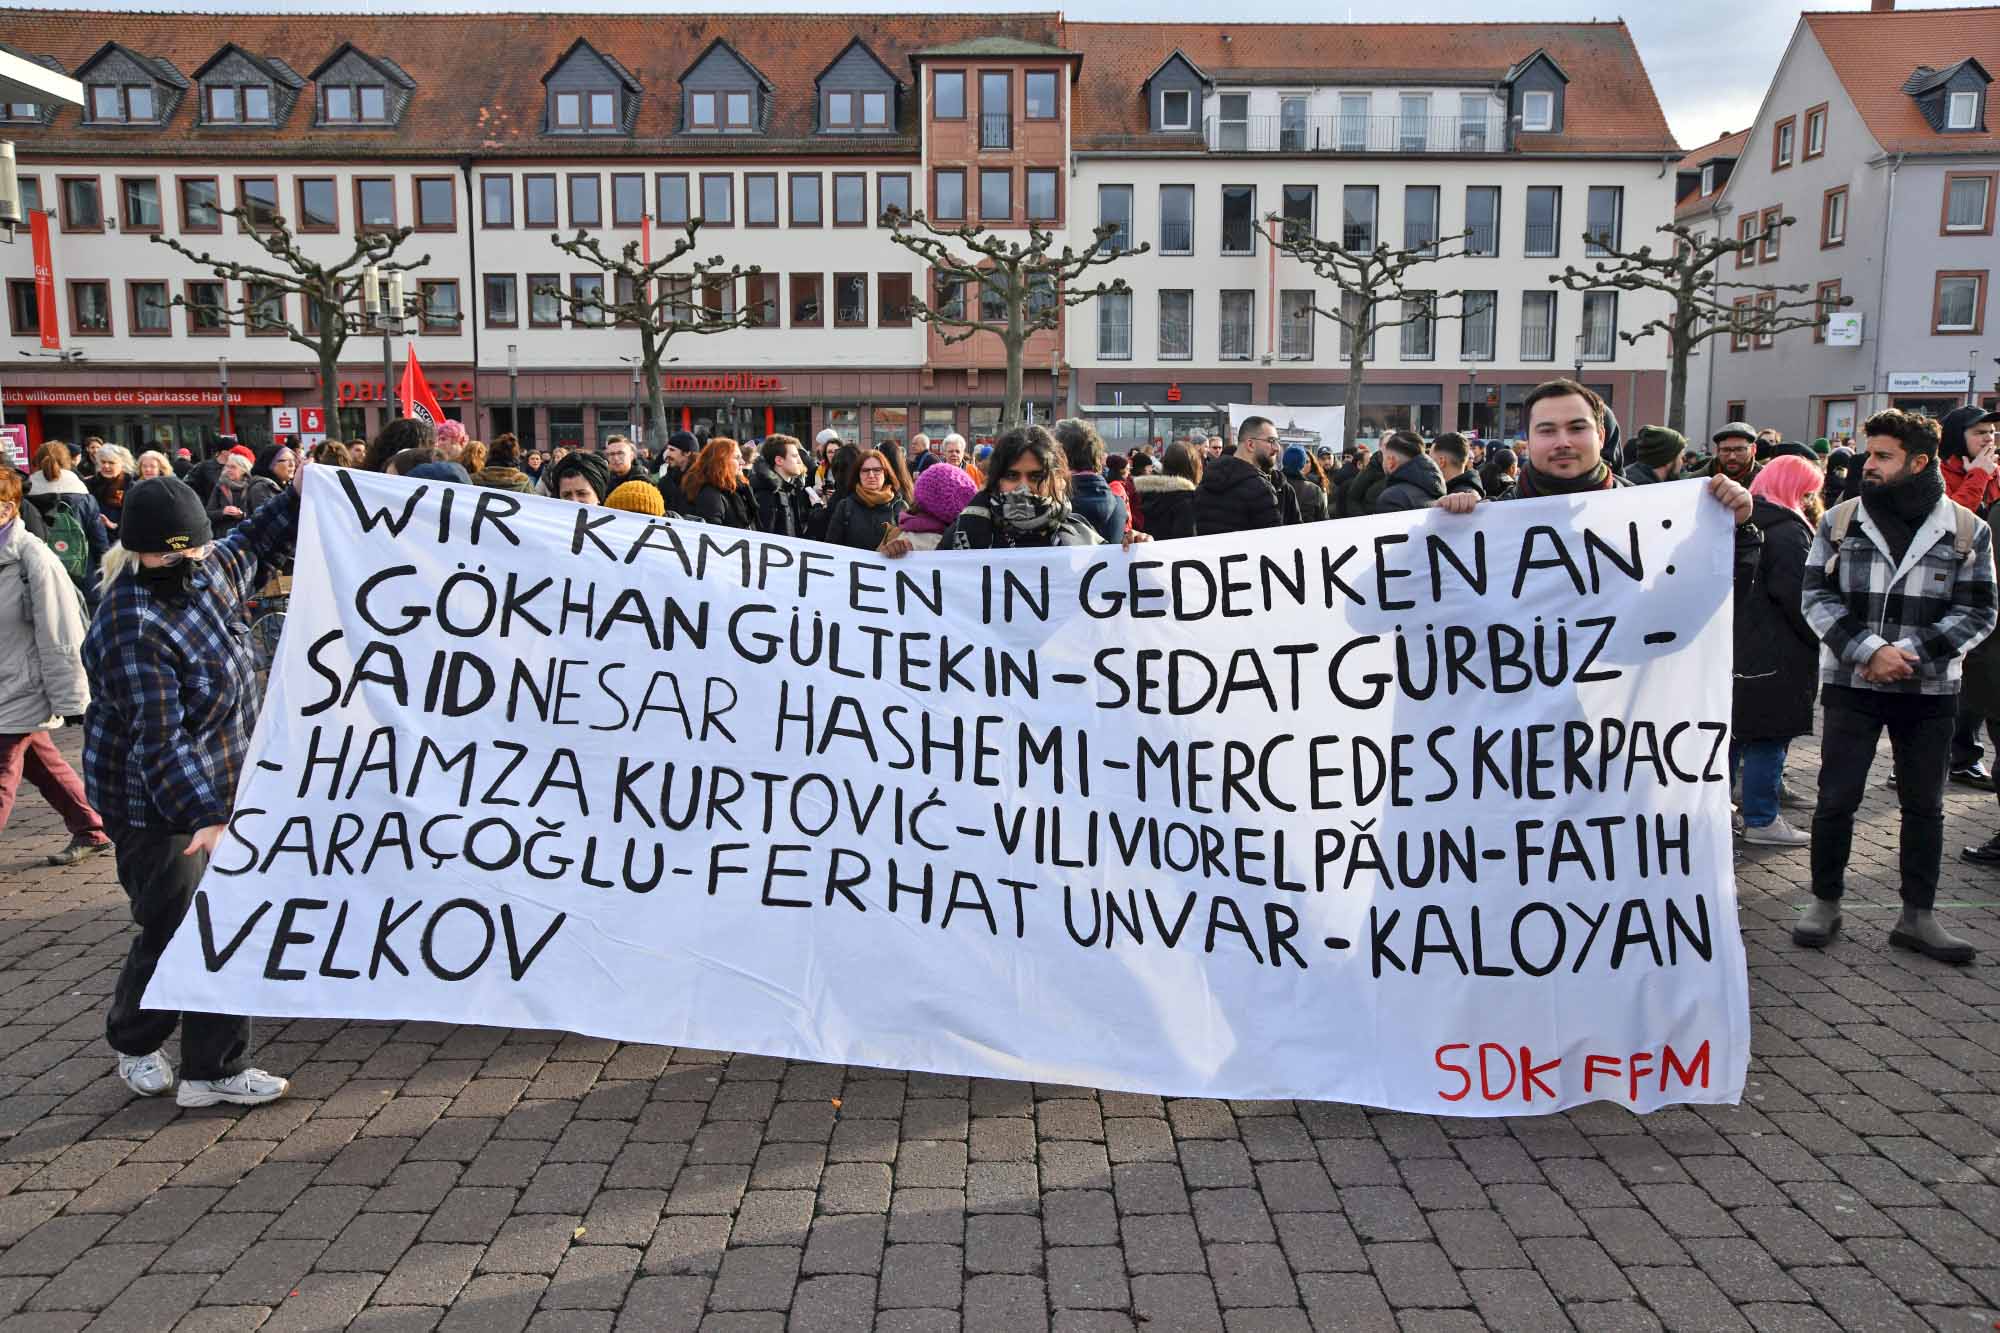 WIR KÄMPFEN IN GEDENKEN AN:
GÖKHAN GÜLTEKIN-SEDAT GÜRBÜZ-
SAID NESAR HASHEMI-MERCEDES KIERPACZ
-HAMZA KURTOVIĆ-VILI VIOREL PĂUN-FATIH
SARAÇOĞLU-FERHAT UNVAR-KALOYAN
VELKOV
SDK FFM
zlich willkommen bei der Sparkasse Hanau
Sparkasse
Immobilien